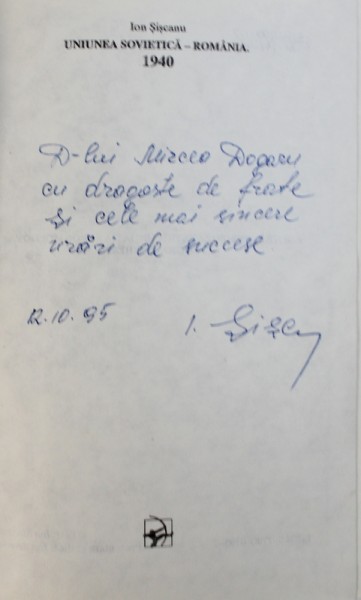 Ion Șișcanu
UNIUNEA SOVIETICĂ – ROMÂNIA.
1940
D-lui Mircea Dogaru
cu dragoste de frate
și cele mai sincere
urări de succese
12.10.95 I. Șișcanu